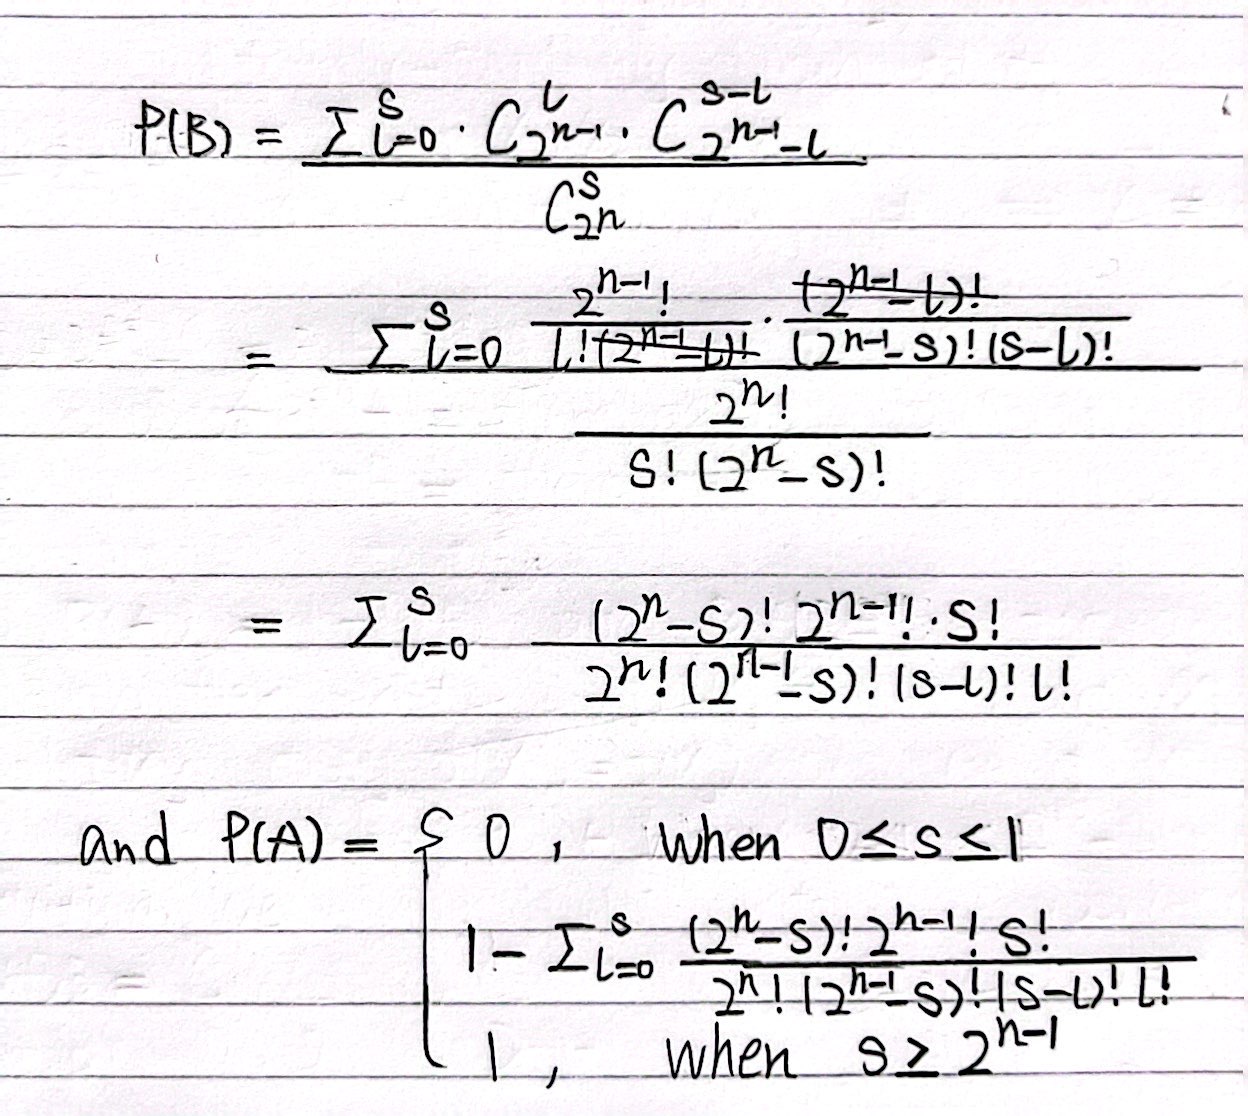 P(B) = \frac{\sum_{l=0}^{s} \cdot C_{2^{n-1}}^{l} \cdot C_{2^{n-1}-l}^{s-l}}{C_{2^n}^{s}}
= \frac{\sum_{l=0}^{s} \frac{2^{n-1}!}{l! \cancel{(2^{n-1}-l)!}} \cdot \frac{\cancel{(2^{n-1}-l)!}}{(2^{n-1}-s)!(s-l)!}}{\frac{2^n!}{s!(2^n-s)!}}
= \sum_{l=0}^{s} \frac{(2^n-s)! 2^{n-1}! \cdot s!}{2^n!(2^{n-1}-s)!(s-l)! l!}
and P(A) = \begin{cases} 0, & \text{when } 0 \le s \le 1 \\
1 - \sum_{l=0}^{s} \frac{(2^n-s)! 2^{n-1}! s!}{2^n!(2^{n-1}-s)!(s-l)! l!} \\
1, & \text{when } s \ge 2^{n-1} \end{cases}